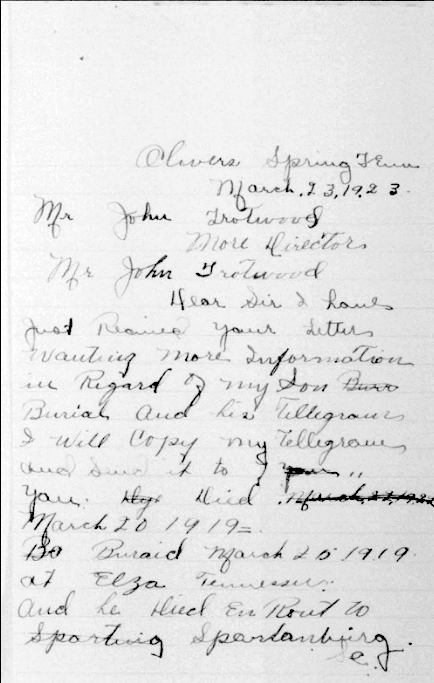 Olivers Spring Tenn
March. 23, 1923.
Mr John Trotwood
More Director
Mr John Trotwood
Dear Sir I have
Just Recived your Letter
Wanting More Information
in Regard of my Son Burr
Burial And his Tellegram
I Will Copy my Tellegram
and Send it to you
you. Died March, 22, 192
March 20 1919=
Buraid March 25 1919.
at Elza Tennessee.
And he Died En Rout to
Sparting Spartanburg.